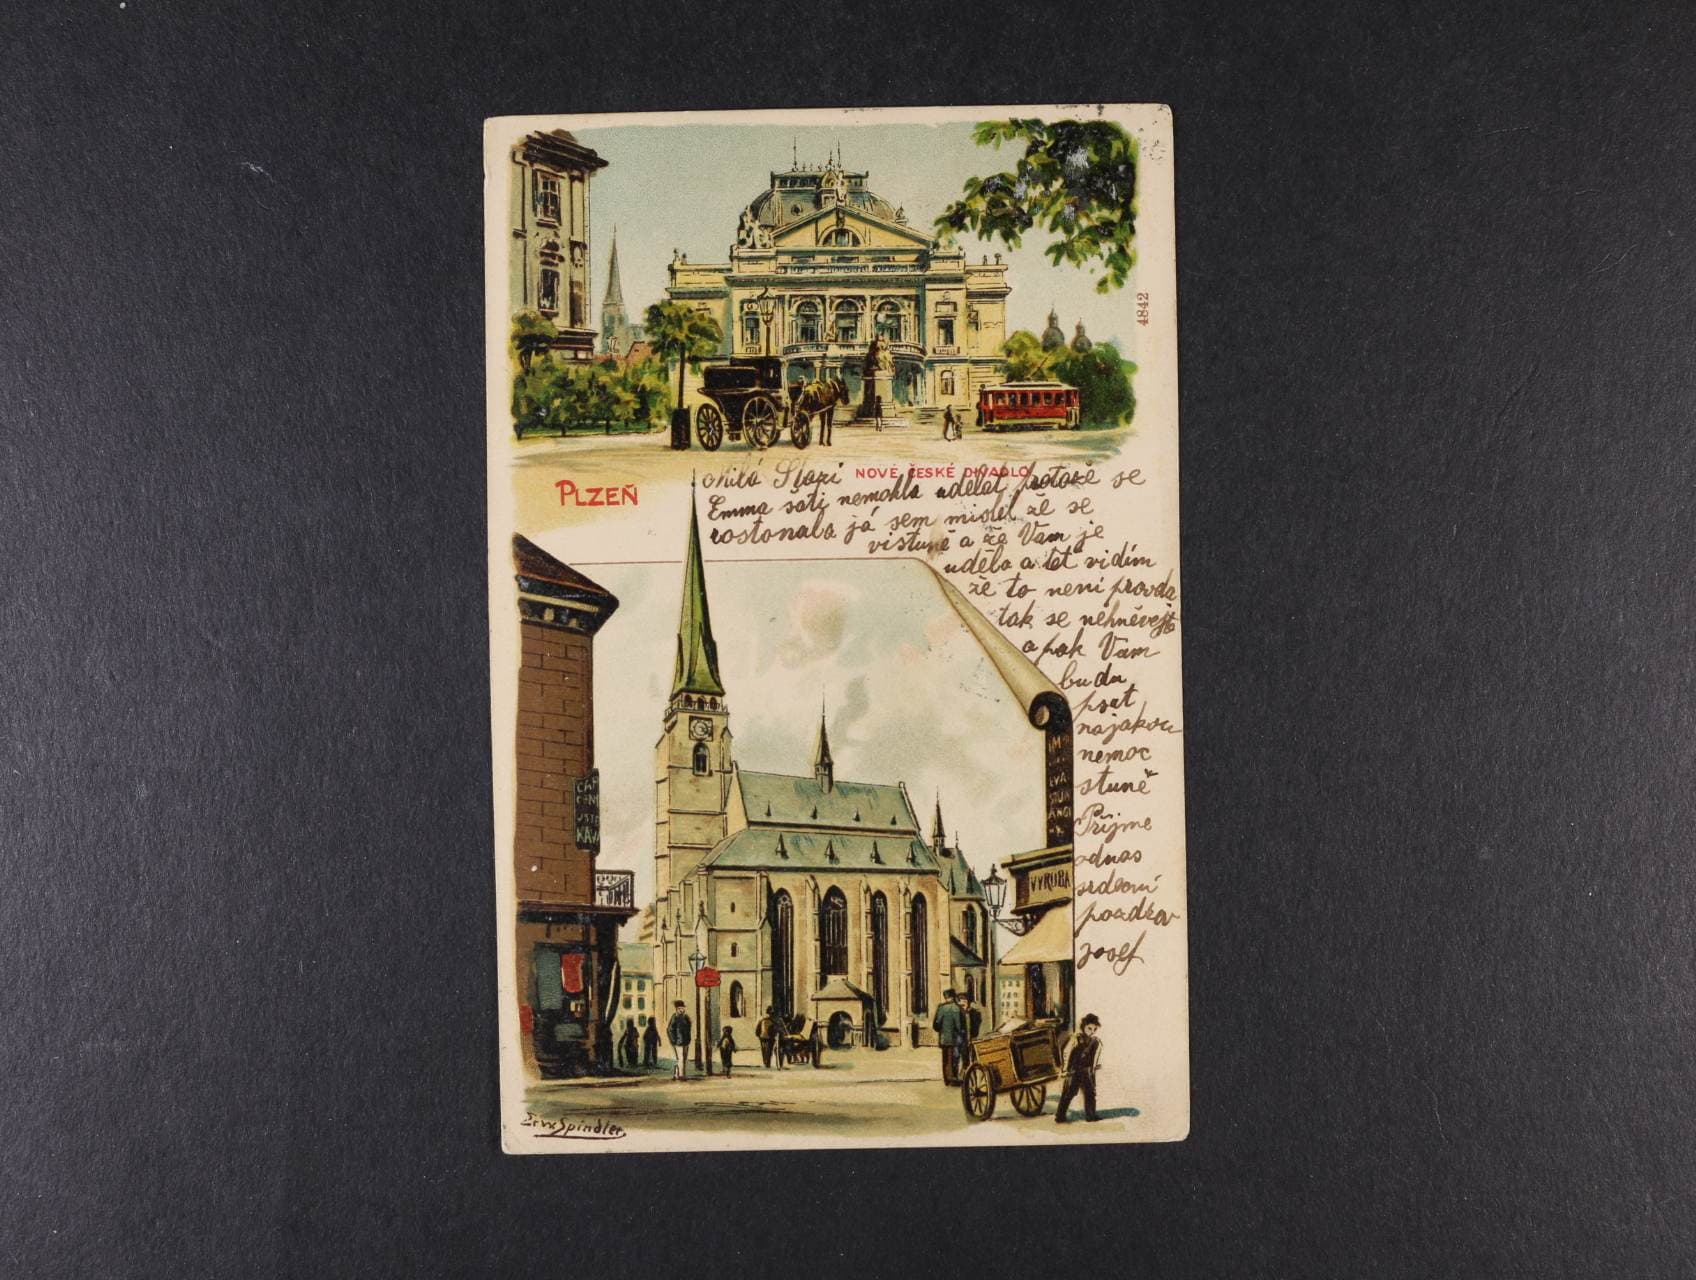 4842
PLZEŇ
NOVÉ ČESKÉ DIVADLO
Milá Slazi
Emma šáti nemohla udělat protože se
rostonala já sem mislel že se
vistuně a že Vám je
uděla a teť vidím
že to není pravda
tak se nehněvejte
a pak Vám
budu
psat
najakou
nemoc
stuně
Přijme
odnas
srdeoní
pozdrav
Josef
KÁVA
VÝROBA
Erw. Spindler.